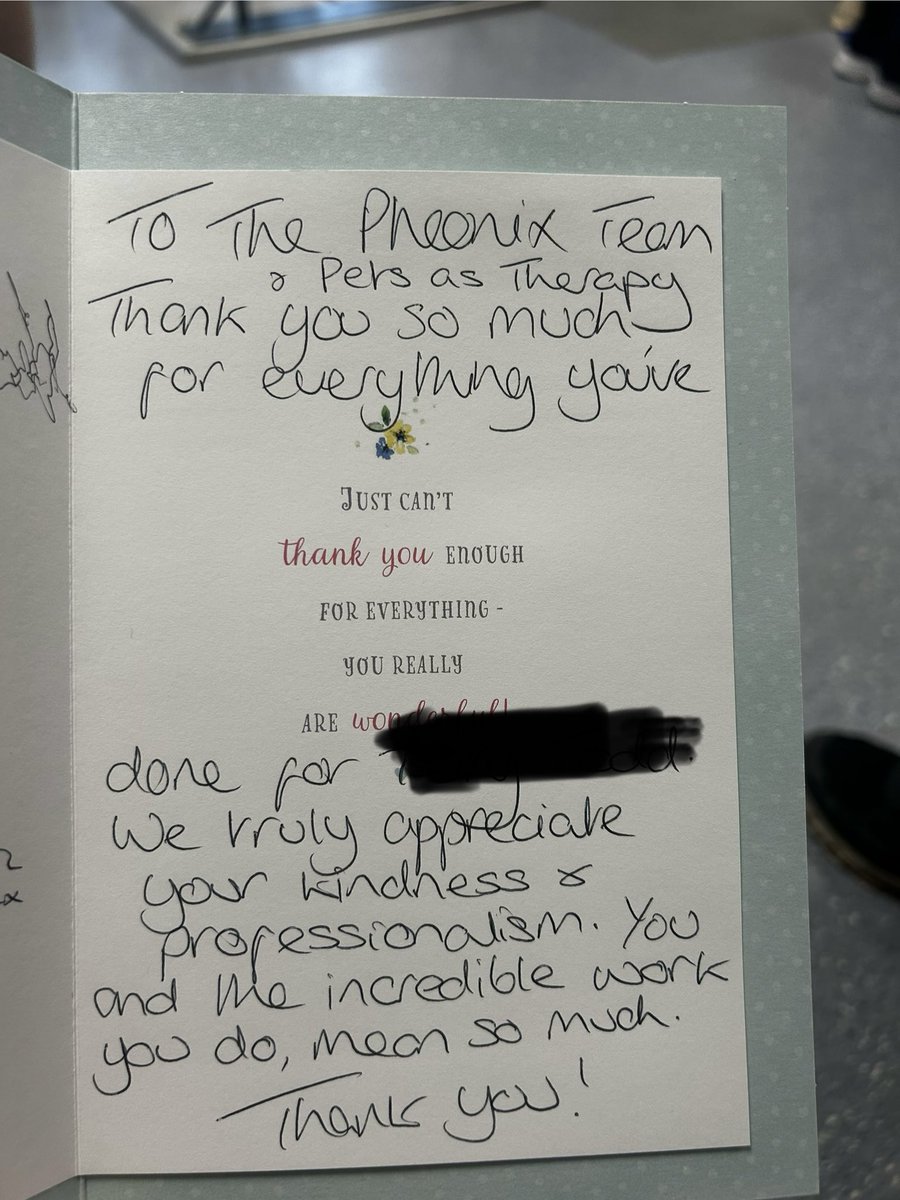 To The Pheonix Team
& Pets as Therapy
Thank you so much
for everything you've
JUST CAN'T
thank you ENOUGH
FOR EVERYTHING -
YOU REALLY
ARE wonderful!
done for
We truly appreciate
your kindness &
professionalism. You
and the incredible work
you do, mean so much.
Thank you!